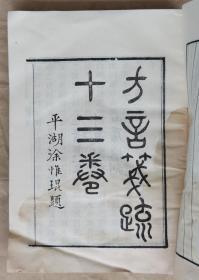 方言箋疏
十三卷
平湖徐惟琨題